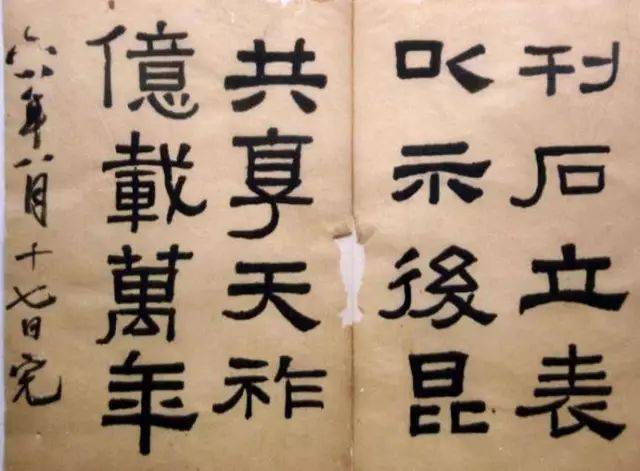 刊石立表
㕥示後昆
共享天祚
億載萬年
六八年八月十七日完